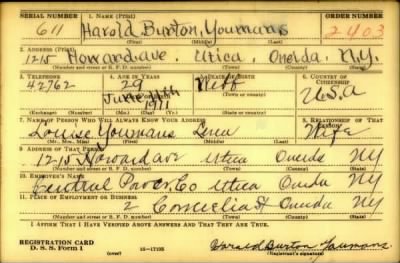 SERIAL NUMBER 1. NAME (Print) ORDER NUMBER
611 Harold Burton Youmans 2403
(First) (Middle) (Last)
2. ADDRESS (Print)
1215 Howard ave. Utica, Oneida. N.Y.
(Number and street or R. F. D. number) (Town) (County) (State)
3. TELEPHONE 4. AGE IN YEARS 5. PLACE OF BIRTH 6. COUNTRY OF CITIZENSHIP
42762 29
DATE OF BIRTH
1911 U.S.A
(Exchange) (Number) (Mo.) (Day) (Yr.) (State or country)
7. NAME OF PERSON WHO WILL ALWAYS KNOW YOUR ADDRESS 8. RELATIONSHIP OF THAT PERSON
Louise Youmans Wife
(Mr., Mrs., Miss) (First) (Middle) (Last)
9. ADDRESS OF THAT PERSON
1215 Howard ave Utica Oneida NY
(Number and street or R. F. D. number) (Town) (County) (State)
10. EMPLOYER'S NAME
Central Paver Co Utica Oneida NY
11. PLACE OF EMPLOYMENT OR BUSINESS
2 Cornelia St Oneida NY
(Number and street or R. F. D. number) (Town) (County) (State)
I AFFIRM THAT I HAVE VERIFIED ABOVE ANSWERS AND THAT THEY ARE TRUE.
REGISTRATION CARD
D. S. S. Form 1 (over) 16-17105 Harold Burton Youmans
(Registrant's signature)